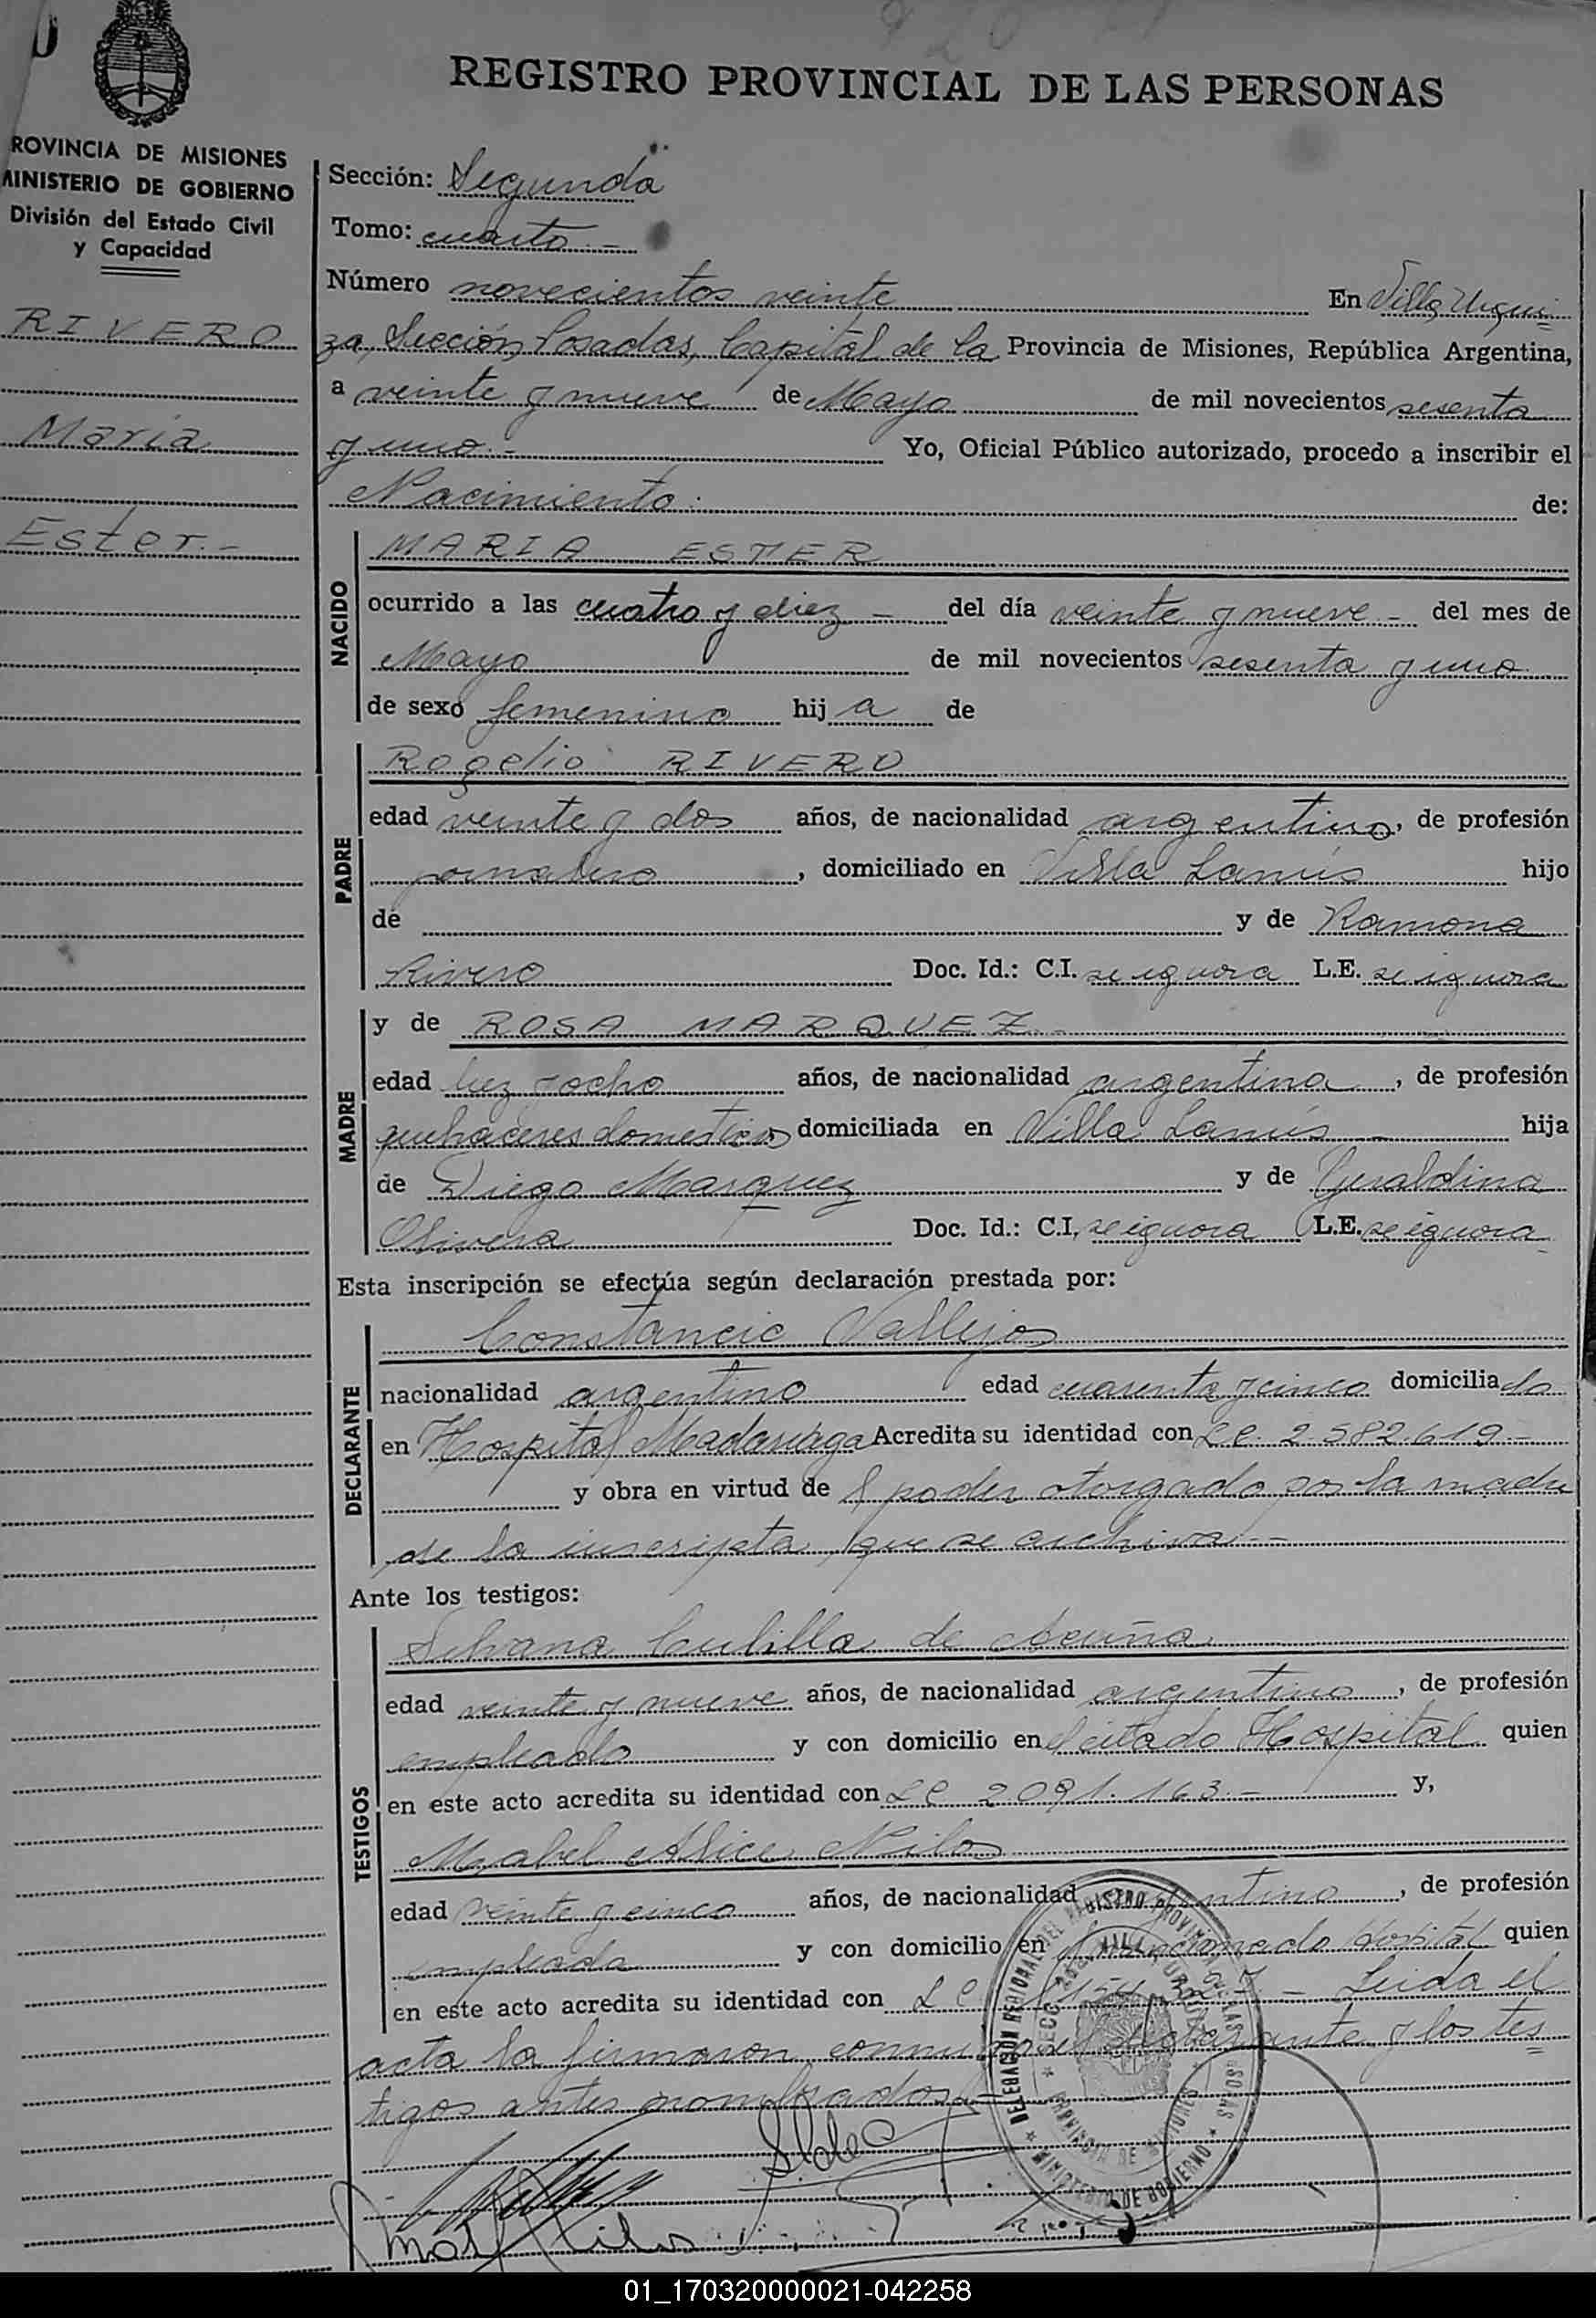 REGISTRO PROVINCIAL DE LAS PERSONAS
ROVINCIA DE MISIONES
MINISTERIO DE GOBIERNO
División del Estado Civil
y Capacidad
RIVERO
María
Ester.-
Sección: Segunda
Tomo: cuarto.-
Número novecientos veinte En Villa Urqui
za, Sección Posadas, Capital de la Provincia de Misiones, República Argentina,
a veinte y nueve de Mayo de mil novecientos sesenta
y uno.- Yo, Oficial Público autorizado, procedo a inscribir el
Nacimiento: de:
NACIDO
MARIA ESTER
ocurrido a las cuatro y diez - del día veinte y nueve - del mes de
Mayo de mil novecientos sesenta y uno
de sexo femenino hij a de
PADRE
Rogelio RIVERO
edad veinte y dos años, de nacionalidad argentino, de profesión
jornalero, domiciliado en Villa Lanús hijo
de y de Ramona
Rivero Doc. Id.: C.I. se ignora L.E. se ignora
MADRE
y de ROSA MARQUEZ-
edad diez y ocho años, de nacionalidad argentina, de profesión
quehaceres domesticos domiciliada en Villa Lanús - hija
de Diego Marquez y de Geraldina
Olivera Doc. Id.: C.I. se ignora L.E. se ignora
Esta inscripción se efectúa según declaración prestada por:
DECLARANTE
Constancio Vallejos
nacionalidad argentino edad cuarenta y cinco domiciliado
en Hospital Madariaga Acredita su identidad con L.E. 2.582.619.-
y obra en virtud de poder otorgado por la madre
de la inscripta que se archiva.-
Ante los testigos:
TESTIGOS
Silvana de Acuña
edad veinte y nueve años, de nacionalidad argentina, de profesión
empleada y con domicilio en el citado Hospital quien
en este acto acredita su identidad con LC 2.091.163.- y,
Mabel Alice Nilos
edad veinte y cinco años, de nacionalidad argentina, de profesión
empleada y con domicilio en mencionado Hospital quien
en este acto acredita su identidad con LC - Leida el
acta la firmaron conmigo el declarante y los tes
tigos antes nombrados.
DELEGACION REGIONAL DEL REGISTRO PROVINCIAL DE LAS PERSONAS
MINISTERIO DE GOBIERNO
VILLA URQUIZA
PROVINCIA DE MISIONES
01_170320000021-042258